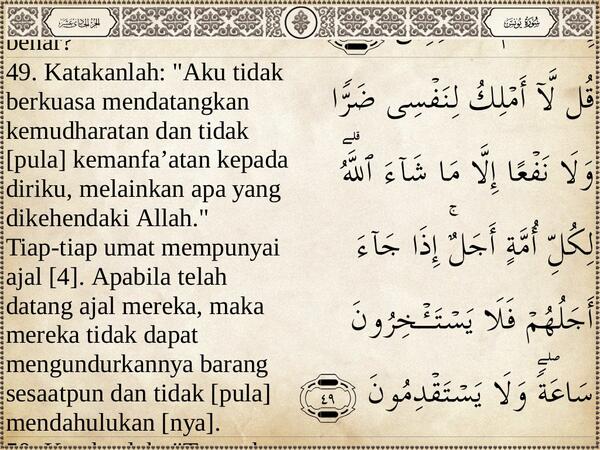 سُورَةُ يُونُسَ
benar?
49. Katakanlah: "Aku tidak
berkuasa mendatangkan
kemudharatan dan tidak
[pula] kemanfa’atan kepada
diriku, melainkan apa yang
dikehendaki Allah."
Tiap-tiap umat mempunyai
ajal [4]. Apabila telah
datang ajal mereka, maka
mereka tidak dapat
mengundurkannya barang
sesaatpun dan tidak [pula]
mendahulukan [nya].
قُل لَّآ أَمْلِكُ لِنَفْسِى ضَرًّا
وَلَا نَفْعًا إِلَّا مَا شَآءَ ٱللَّهُ ۗ
لِكُلِّ أُمَّةٍ أَجَلٌ ۚ إِذَا جَآءَ
أَجَلُهُمْ فَلَا يَسْتَـْٔخِرُونَ
سَاعَةً ۖ وَلَا يَسْتَقْدِمُونَ ٤٩